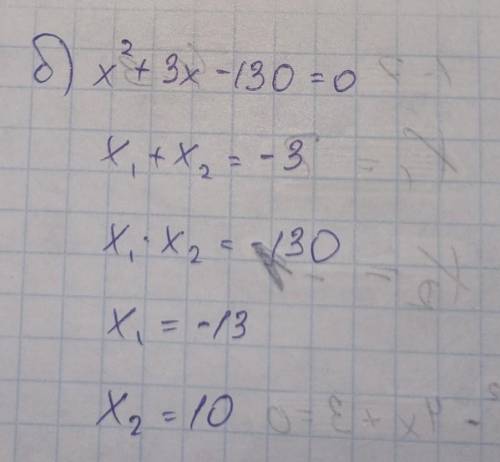 б) x² + 3x - 130 = 0
x₁ + x₂ = -3
x₁ · x₂ = -130
x₁ = -13
x₂ = 10